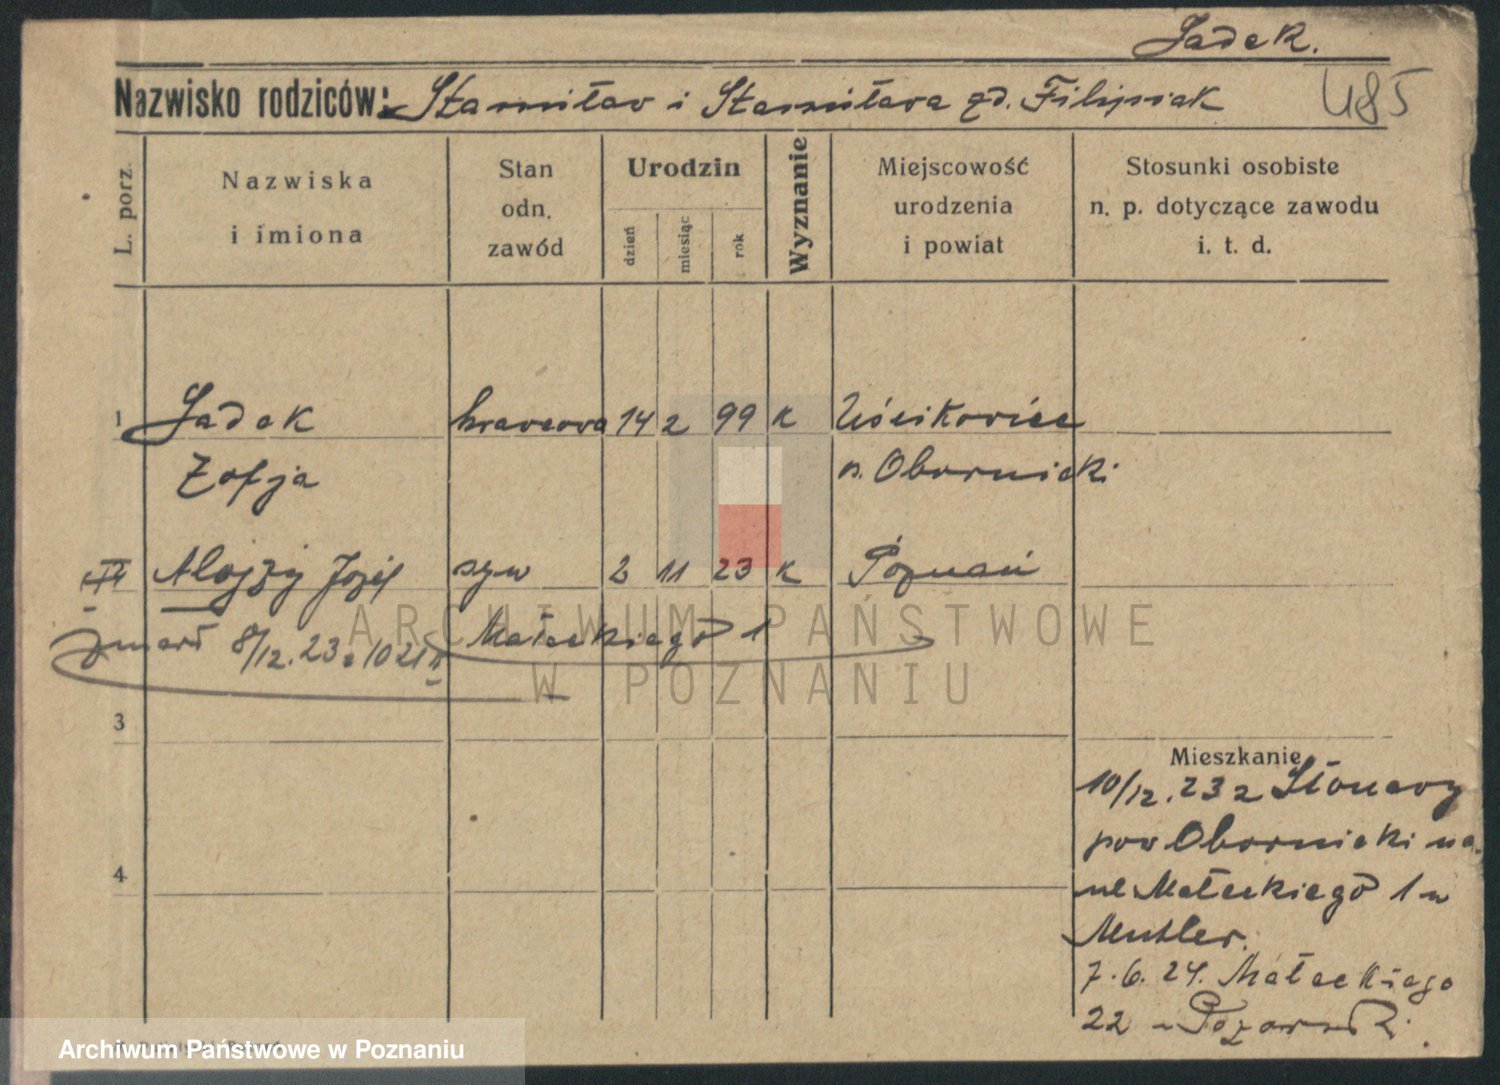 Jadek.
Nazwisko rodziców: Stanisław i Stanisława zd. Filipiak
485
L. porz.
Nazwiska
i imiona
Stan
odn.
zawód
Urodzin
dzień
miesiąc
rok
Wyznanie
Miejscowość
urodzenia
i powiat
Stosunki osobiste
n. p. dotyczące zawodu
i. t. d.
1 Jadek krawcowa 14 2 99 k Uścikowiec
Zofja p. Obornicki
Alojzy Józef syn 2 11 23 k Poznań
zmarł 8/12.23 1021 Małeckiego 1
ARCHIWUM PAŃSTWOWE
W POZNANIU
3
Mieszkanie
10/12.23 z Słonawy
pow Obornicki na
ul Małeckiego 1 u
4
7.6.24. Małeckiego
22
Archiwum Państwowe w Poznaniu